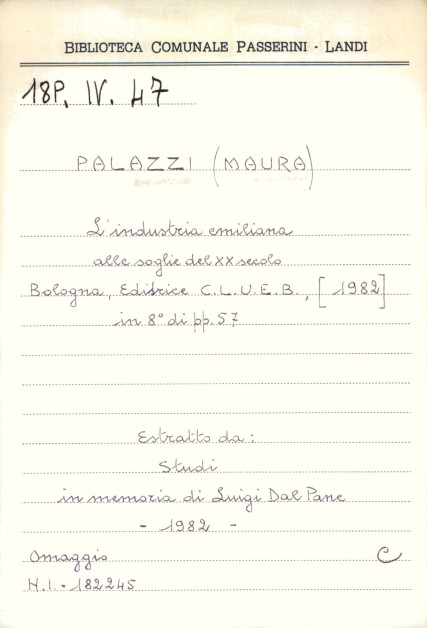 BIBLIOTECA COMUNALE PASSERINI - LANDI
18P. IV. 47
PALAZZI (MAURA)
L'industria emiliana
alle soglie del XX secolo
Bologna, Editrice C.L.U.E.B., [1982]
in 8° di pp. 57
Estratto da:
Studi
in memoria di Luigi Dal Pane
- 1982 -
Omaggio C
N.I. - 182245